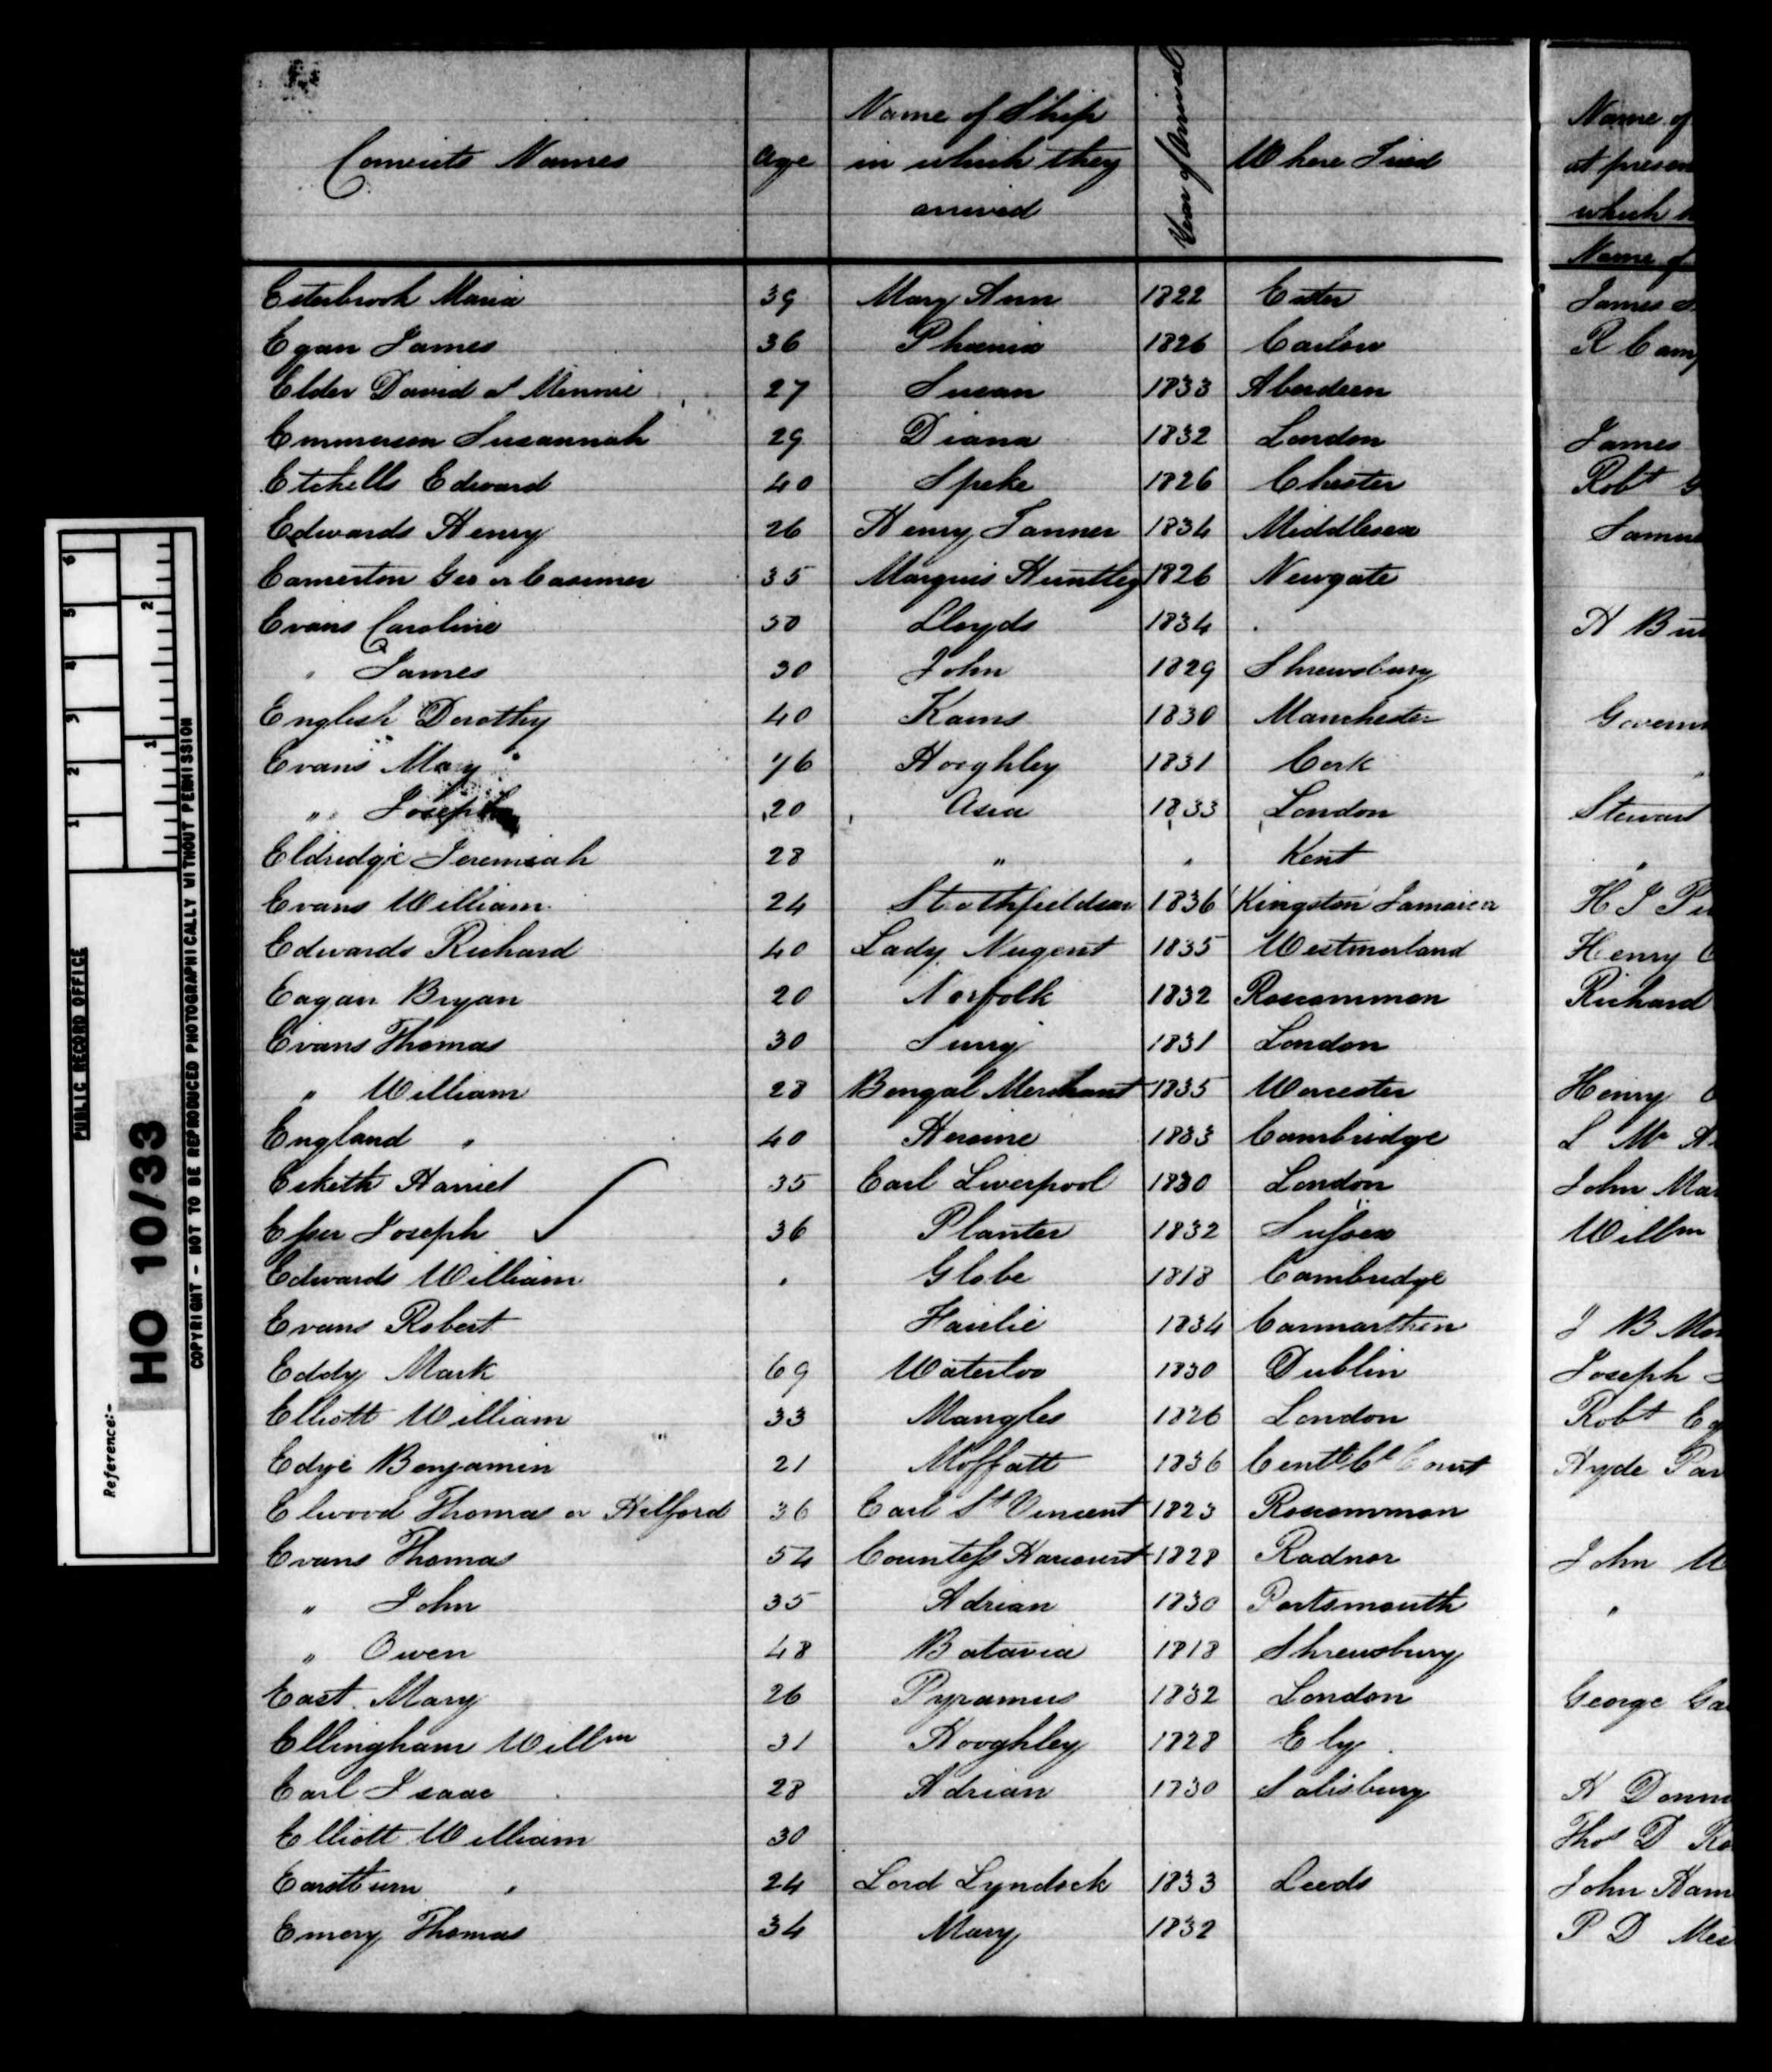 Convicts Names Age Name of Ship in which they arrived Year of Arrival Where Tried
Name of
at presen
which
Name of
Esterbrook Maria 39 Mary Ann 1822 Exeter James
Egan James 36 Phœnix 1826 Carlow R Cam
Elder David of Minnie 27 Susan 1833 Aberdeen
Emmerson Susannah 29 Diana 1832 London James
Etchells Edward 40 Speke 1826 Chester Robt
Edwards Henry 26 Henry Tanner 1834 Middlesex Samu
Eamerton Geo or Casimer 35 Marquis Huntley 1826 Newgate
Evans Caroline 30 Lloyds 1834 . H Bu
" James 30 John 1829 Shrewsbury
English Dorothy 40 Kains 1830 Manchester Governm
Evans Mary 46 Hooghley 1831 Cork
" Joseph 20 Asia 1833 London Stewart
Eldridge Jeremiah 28 " " Kent "
Evans William 24 Stathfieldsea 1836 Kingston Jamaica H J
Edwards Richard 40 Lady Nugent 1835 Westmorland Henry
Eagan Bryan 20 Norfolk 1832 Roscommon Richard
Evans Thomas 30 Surry 1831 London
" William 28 Bengal Merchant 1835 Worcester Henry
England " 40 Heroine 1833 Cambridge L Mc
Esketh Daniel 35 Earl Liverpool 1830 London John Ma
Esser Joseph 36 Planter 1832 Sussex Willm
Edwards William . Globe 1818 Cambridge
Evans Robert Fairlie 1834 Carmarthen J B
Eddy Mark 69 Waterloo 1830 Dublin Joseph
Elliott William 33 Mangles 1826 London Robt
Edge Benjamin 21 Moffatt 1836 Centl Cl Court Hyde Par
Elwood Thomas or Hilford 36 Earl St Vincent 1823 Roscommon
Evans Thomas 54 Countess Harcourt 1828 Radnor John
" John 35 Adrian 1830 Portsmouth "
" Owen 48 Batavia 1818 Shrewsbury
East Mary 26 Pyramus 1832 London George Ga
Ellingham Willm 31 Hooghley 1828 Ely
Earl Isaac 28 Adrian 1830 Salisbury H Donn
Elliott William 30 Thos D
Eastburn " 24 Lord Lyndock 1833 Leeds John Ham
Emory Thomas 34 Mary 1832 P D
1 2 3 4 5 6
1 2
PUBLIC RECORD OFFICE
Reference:-
HO 10/33
COPYRIGHT - NOT TO BE REPRODUCED PHOTOGRAPHICALLY WITHOUT PERMISSION